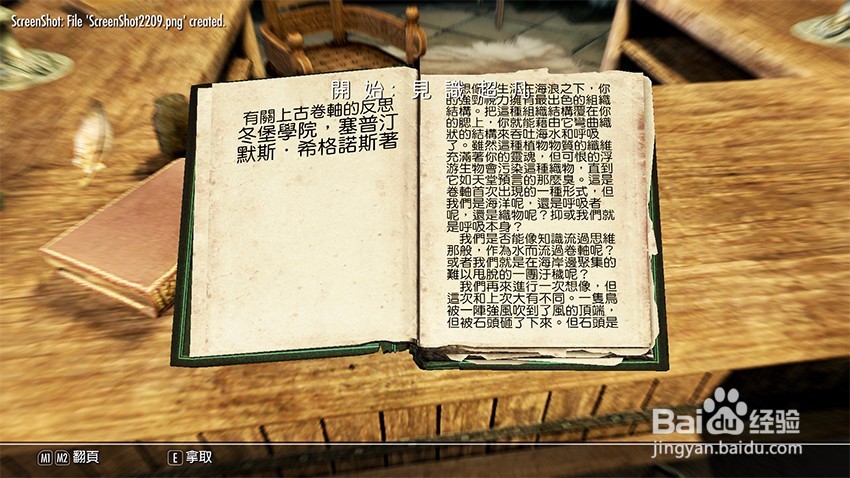 ScreenShot: File 'ScreenShot2209.png' created.
開 始 : 見 識 超 凡
有關上古卷軸的反思
冬堡學院，塞普汀
默斯・希格諾斯著
生活在海浪之下，你
的強勁視力擁有最出色的組織
結構。把這種組織結構覆在你
的腮上，你就能藉由它彎曲織
狀的結構來吞吐海水和呼吸
了。雖然這種植物物質的纖維
充滿著你的靈魂，但可恨的浮
游生物會污染這種織物，直到
它如天堂預言的那麼臭。這是
卷軸首次出現的一種形式，但
我們是海洋呢，還是呼吸者
呢，還是織物呢？抑或我們就
是呼吸本身？
我們是否能像知識流過思維
那般，作為水而流過卷軸呢？
或者我們就是在海岸邊聚集的
難以甩脫的一團汙穢呢？
我們再來進行一次想像，但
這次和上次大有不同。一隻鳥
被一陣強風吹到了風的頂端，
但被石頭砸了下來。但石頭是
Bai du 经验
jingyan.baidu.com
M1 M2 翻頁
E 拿取